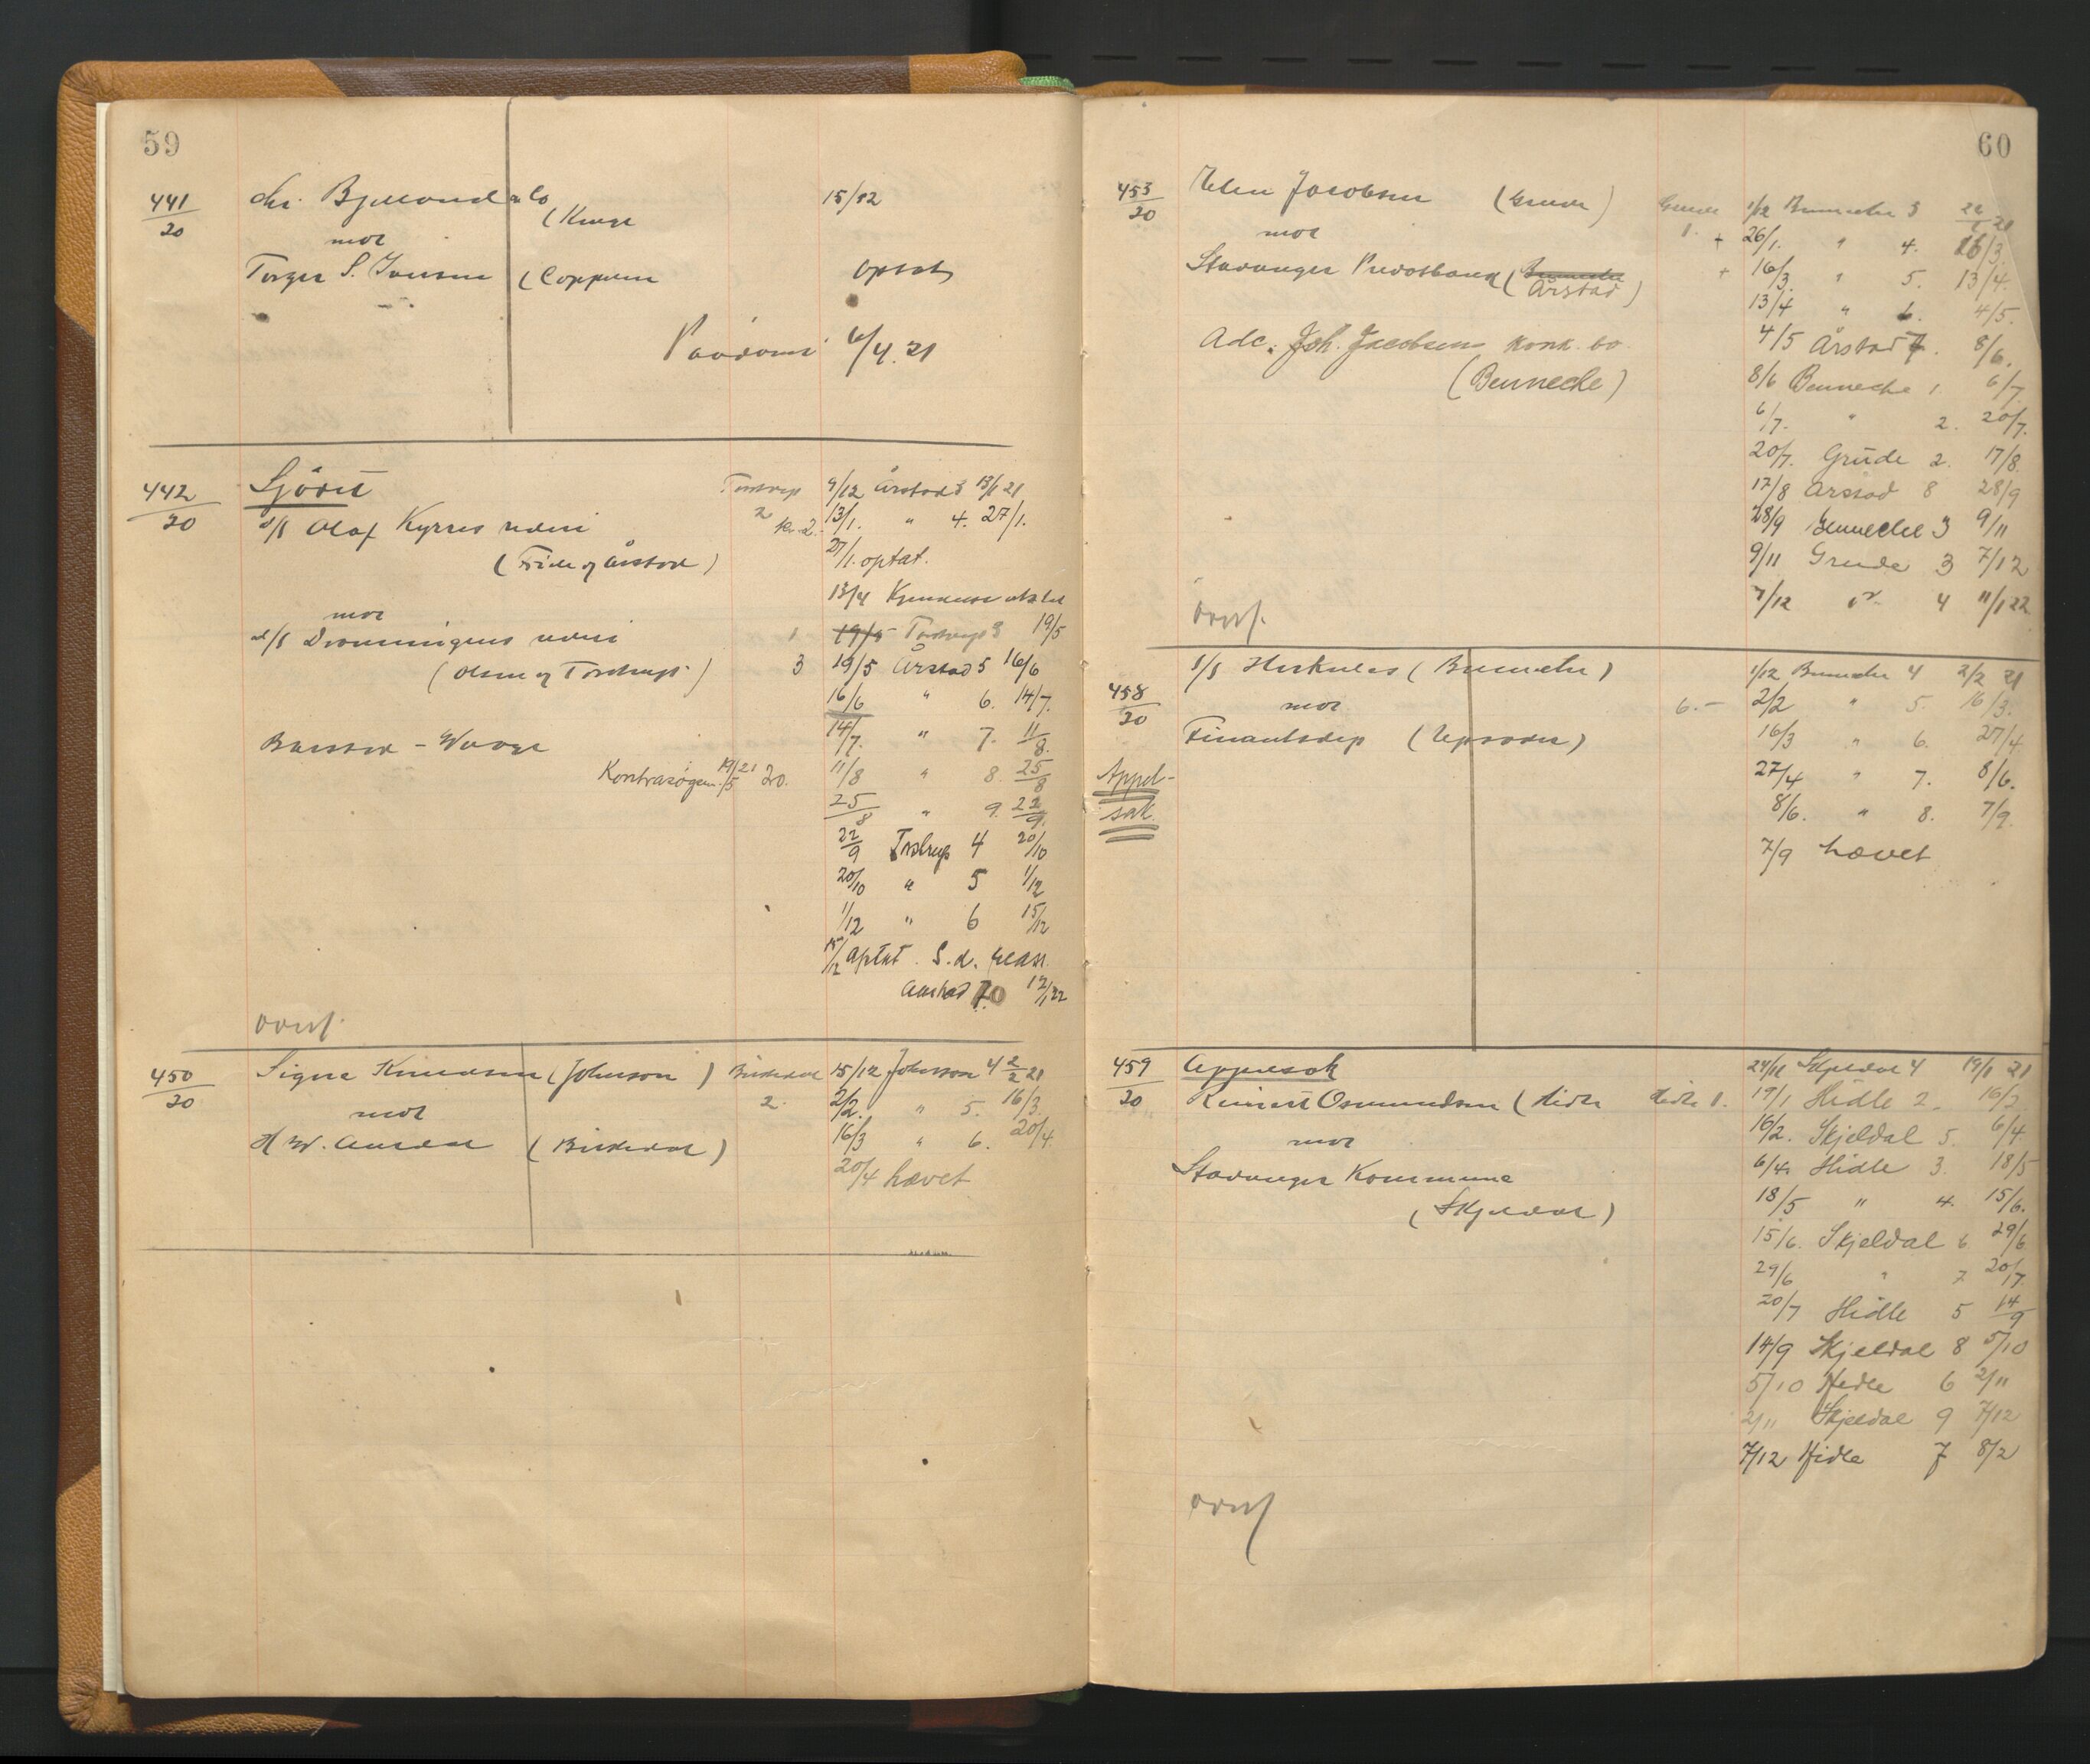 59
441/20
Chr. Bjelland & Co
(Kluge
15/12
mot
Torger S. (Coppum
optat
Paadømt 6/4.21
442/20
Sjörét
Torstrup
9/12 Årstad 3 13/1 21
d/s Olaf Kyrres rederi
2 kr. 2.
13/1. " 4. 27/1.
(Fride og Årstad)
27/1. optat.
13/4 Kjennelse afsat
mot
1 19/5 Torstrup 3 19/5
d/s Dronningens rederi
(Olsen og Torstrup)
3 19/5 Årstad 5 16/6
16/6 " 6. 14/7.
14/7. " 7. 11/8.
Kontrasøgsm. 19/5 21 20.
11/8 " 8. 25/8
25/8 " 9. 22/9.
22/9 Torstrup 4 20/10
20/10 " 5 1/12
1/12 " 6 15/12
15/12 optat. S. d. reass.
Aarstad 10 12/1 22
ovrf.
450/20
Signe Knudsen (Johnson) Birkedal 15/12 Johnson 4 2/2 21
2. 2/2. " 5. 16/3.
mot
16/3 " 6. 20/4.
(Birkedal)
20/4 hævet
60
453/20
Elen Jacobsen (Grude)
Grude 1/12 Bennecke 3 26/1 21
mot
1. + 26/1. " 4. 16/3.
Stavanger Privatbank (Bennecke Årstad)
+ 16/3. " 5. 13/4.
13/4 " 6. 4/5.
Adc. Joh. Jacobsens konk. bo
4/5 Årstad 7. 8/6.
(Bennecke)
8/6 Bennecke 1 6/7.
6/7. " 2. 20/7.
20/7. Grude 2. 17/8.
17/8 Årstad 8 28/9
28/9 Bennecke 3 9/11
9/11 Grude 3 7/12
7/12 " 4 11/1 22
ovrf.
458/20
s/s Herkules (Bennecke)
1/12 Bennecke 4 2/2 21
mot
6.- 2/2 " 5. 16/3.
Finantsdep
16/3 " 6. 27/4.
Appel-
27/4 " 7. 8/6.
sak.
8/6. " 8. 7/9.
7/9 hævet
459/20
Appelsak
24/11 Skjeldal 4 19/1 21
Reinert Osmundsen (Hidle
Hidle 1. 19/1 Hidle 2. 16/2
mot
16/2. Skjeldal 5. 6/4
Stavanger Kommune
6/4. Hidle 3. 18/5
(Skjeldal)
18/5 " 4. 15/6.
15/6. Skjeldal 6 29/6
29/6 " 7 20/7.
20/7 Hidle 5 14/9
14/9 Skjeldal 8 5/10
5/10 Hidle 6 2/11
2/11 Skjeldal 9 7/12
7/12 Hidle 7 8/2
ovrf